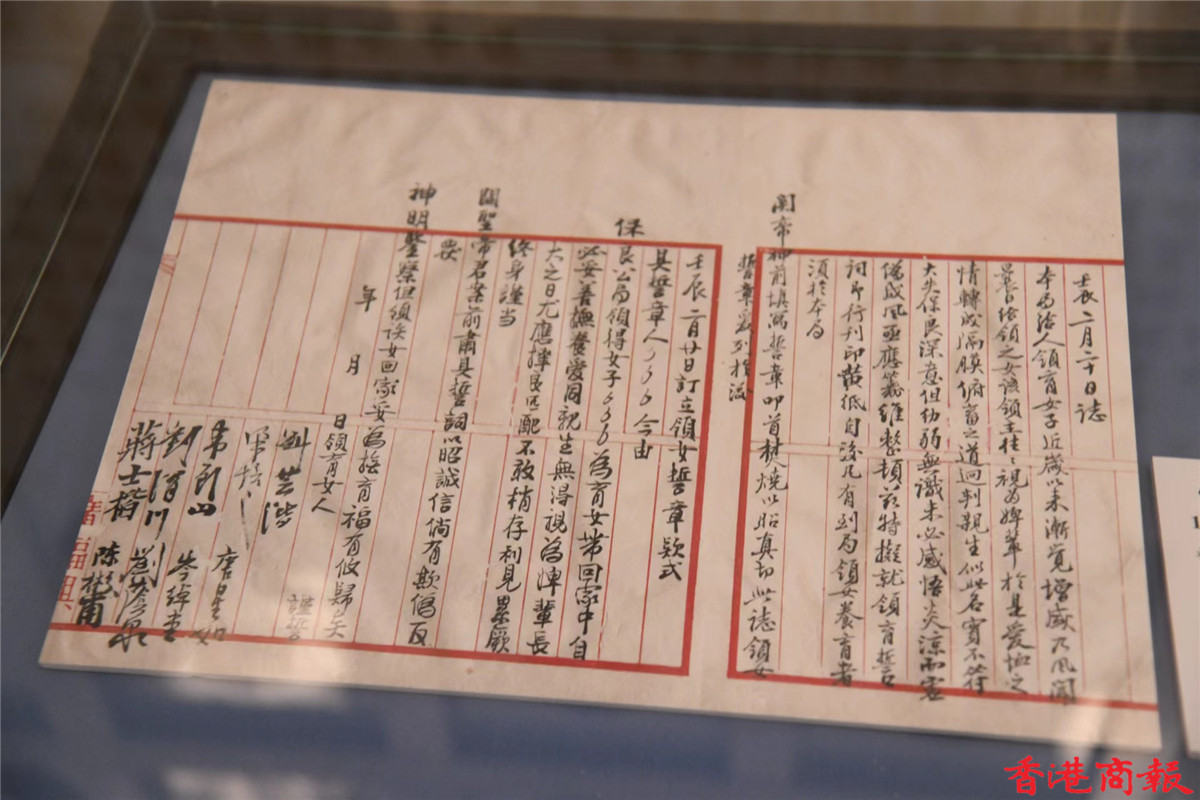 壬辰二月二十日誌
本局給人領育女子近歲以來漸覺增盛乃風聞
曩日給領之女該領主往視為婢輩於是愛恤之
情轉成隔膜俯畜之道逈判親生似此名實不符
大失保良深意但幼弱無識未必感悟炎涼而虛
偽成風亟應發維整頓爰特擬就領育誓
詞即行刊印黃紙自後凡有到局領女養育者
須於本局
關帝神前填寫誓章叩首焚燒以昭真切此誌領女
誓章式列於後
壬辰二月廿日訂立領女誓章款式
具誓章人 今由
保良公局領得女子 為育女帶回家中自
必妥善撫養愛同親生無得視為婢輩長
大之日尤應擇良匹配不敢稍存利見累厥
終身謹當
關聖帝君案前肅具誓詞以昭誠信倘有欺偽反
畏
神明鑒察但領該女回家妥為撫育福有攸歸矣
年 月 日領育女人
謹誓
劉芸湝
韋朗山 唐星
劉渭川
蔣士楷 陳
香港商報